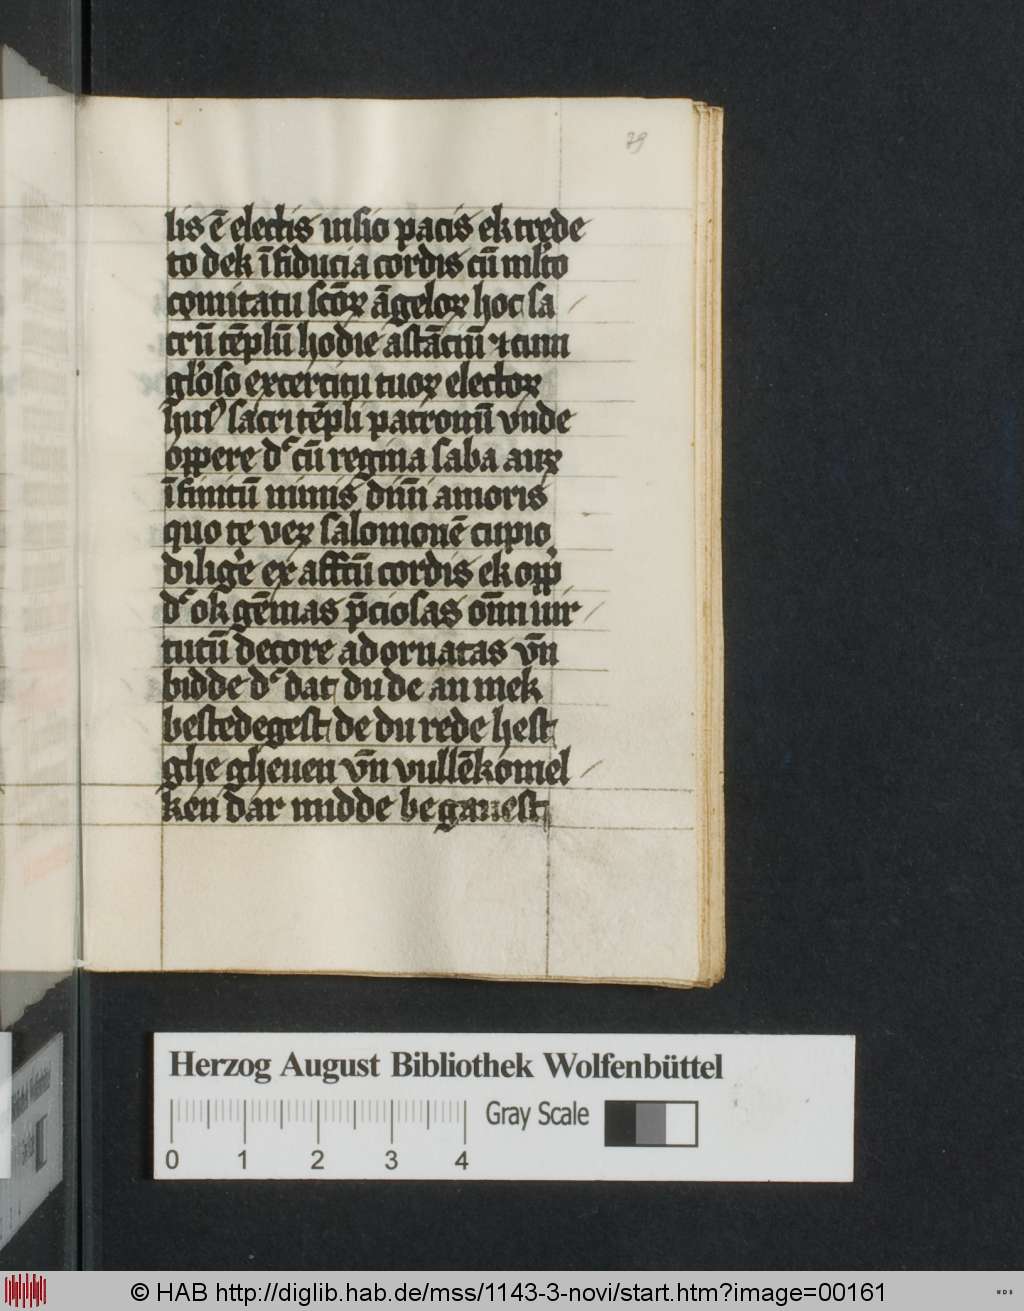 79
lis ē electis uisio pacis ek trede
to dek ī fiducia cordis cū ml'to
comitatu scōꝝ āgeloꝝ hoc sa
crū tēplū hodie astāciū ⁊ cum
gl'oso excercitu tuoꝝ electoꝝ
huiꝰ sacri tēpli patronū vnde
oppere d' cū regina saba auꝝ
īfinitū nimis diuī amoris
quo te veꝝ salomonē cupio
diligē ex affctū cordis ek opp
d' ok gēmas p̄ciosas om̄i uir
tutū decore adornatas vn̄
bidde d' dat du de an mek
bestedegest de du rede hest
ghe gheuen vn̄ vullēkomel
ken dar midde begauest
Herzog August Bibliothek Wolfenbüttel
Gray Scale
0 1 2 3 4
© HAB http://diglib.hab.de/mss/1143-3-novi/start.htm?image=00161